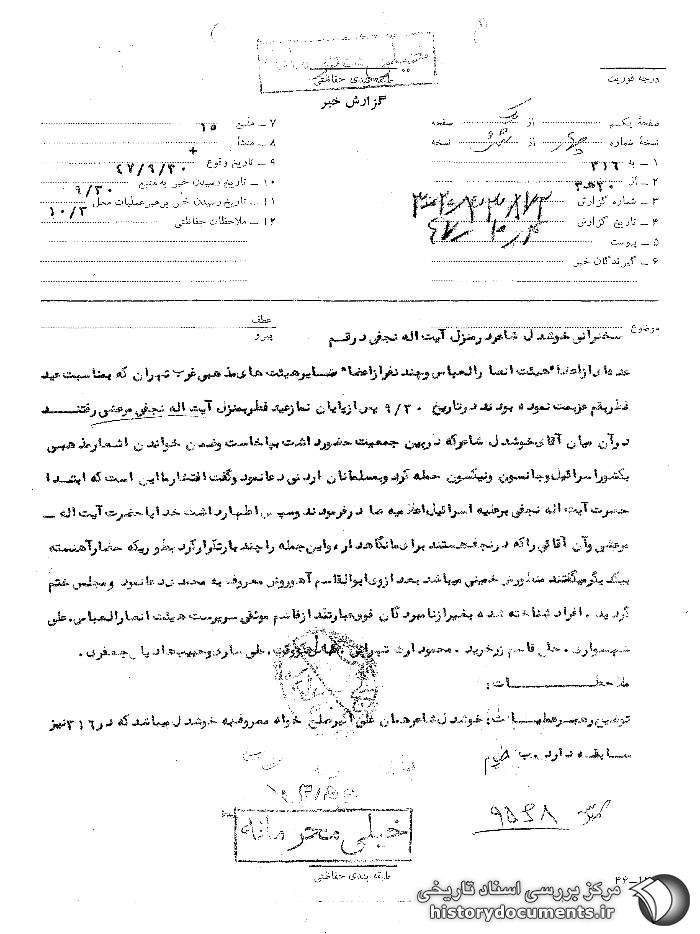 خیلی محرمانه
طبقه بندی حفاظتی
درجه فوریت
گزارش خبر
صفحهٔ یکم از یک صفحه
نسخهٔ شماره از نسخه
۱ ـ به ۳۱۶
۲ ـ از
۳ ـ شماره گزارش
۴ ـ تاریخ گزارش
۵ ـ پیوست
۶ ـ گیرندگان خبر
۷ ـ منبع
۸ ـ منشأ
۹ ـ تاریخ وقوع ۴۷/۹/۳۰
۱۰ ـ تاریخ رسیدن خبر به منبع ۹/۳۰
۱۱ ـ تاریخ رسیدن خبر برهبر عملیات محل ۱۰/۳
۱۲ ـ ملاحظات حفاظتی
عطف
موضوع سخنرانی خوشدل شاعر در منزل آیت اله نجفی در قم
پیرو
عده ای از اعضاء هیئت انصارالعباس و چند نفر از اعضاء سایر هیئت های مذهبی غرب تهران که بمناسبت عید
فطر بقم عزیمت نموده بودند در تاریخ ۹/۳۰ پس از پایان نماز عید فطر بمنزل آیت اله نجفی مرعشی رفتند
در آن میان آقای خوشدل شاعر که در بین جمعیت حضور داشت بپاخاست و ضمن خواندن اشعار مذهبی
بکشور اسرائیل و جانسون و نیکسون حمله کرد و بمسلمانان اردنی دعا نمود و گفت افتخار ما این است که ابتدا
حضرت آیت اله نجفی بر علیه اسرائیل اعلامیه صادر فرمودند و سپس اظهار داشت خدایا حضرت آیت اله ـ
مرعشی و آن آقائی را که در نجف هستند برای ما نگاهدار و این جمله را چند بار تکرار کرد بطوریکه حضار آهسته
بیکدیگر میگفتند منظورش خمینی میباشد بعد از وی ابوالقاسم آهن فروش معروف به محمدی دعا نمود و مجلس ختم
گردید . افراد شناخته شده بغیر از نامبردگان فوق عبارتند از قاسم موثقی سرپرست هیئت انصارالعباس . علی
شهسواری . حاج قاسم زرخرید . محمود ارث شیرازی . علی ساری و حبیب هادیان جعفری .
ملاحظـــــــات :
توضیح رهبر عملیات : خوشدل شاعر همان علی اکبر صلح خواه معروف به خوشدل میباشد که در ۳۱۶ نیز
سابقه دارد .
خیلی محرمانه
طبقه بندی حفاظتی
مرکز بررسی اسناد تاریخی
historydocuments.ir